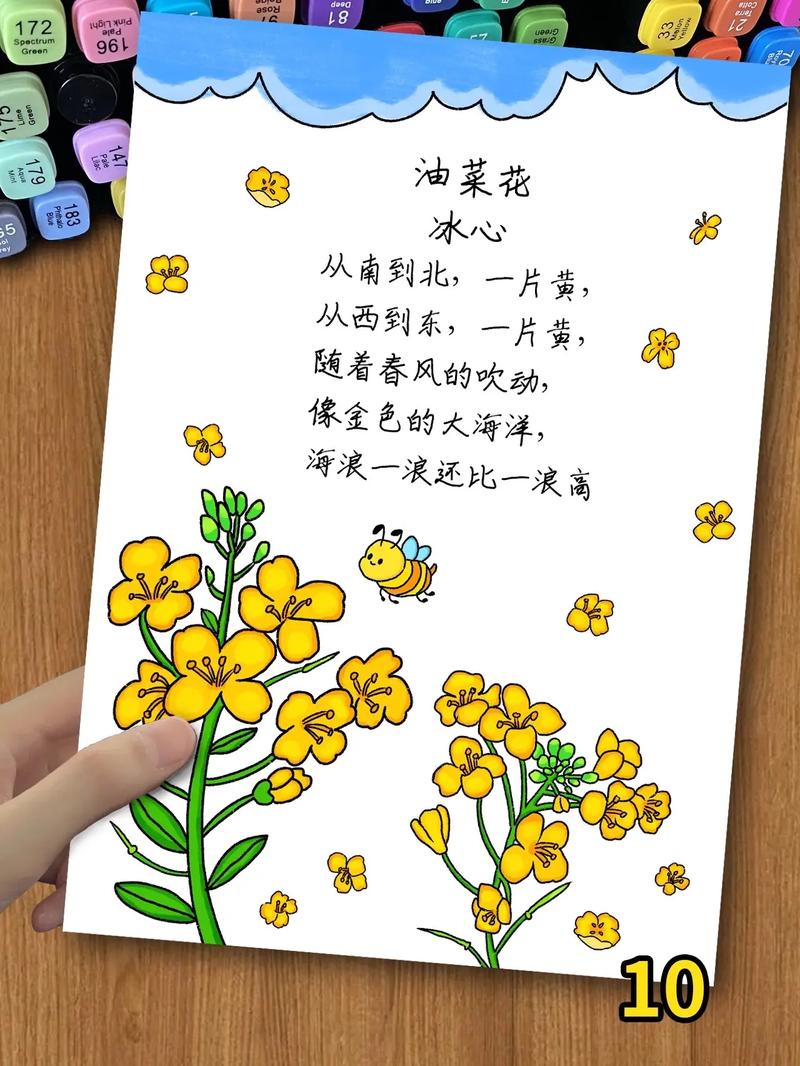 172
Spectrum
Green
196
Pale
Pink Light
175
Lime
Green
179
Aqua
Mint
147
Pale
Lilac
183
Phthalo
Blue
97
Rose
Beige
81
Deep
Green
33
Melon
Yellow
21
Terra
Cotta
油菜花
冰心
从南到北，一片黄，
从西到东，一片黄，
随着春风的吹动，
像金色的大海洋，
海浪一浪还比一浪高
10